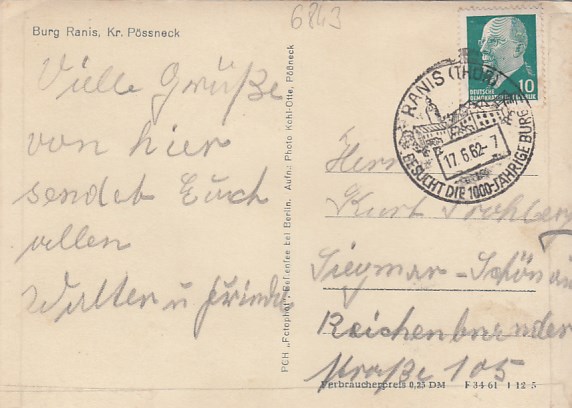 6843
Burg Ranis, Kr. Pössneck
Viele Grüße
von hier
sendet Euch
allen
Walter u Frieda
PCH „Fotophot“, Bestensee bei Berlin. Aufn.: Photo Kohl-Otte, Pößneck
10
DEUTSCHE
DEMOKRATISCHE REPUBLIK
RANIS (THÜR)
17.6.62-7
BESUCHT DIE 1000-JÄHRIGE BURG
Herrn
Kurt
Siegmar-Schönau
Reichenbrander
straße 105
Verbraucherpreis 0,25 DM F 34 61 1 12 5